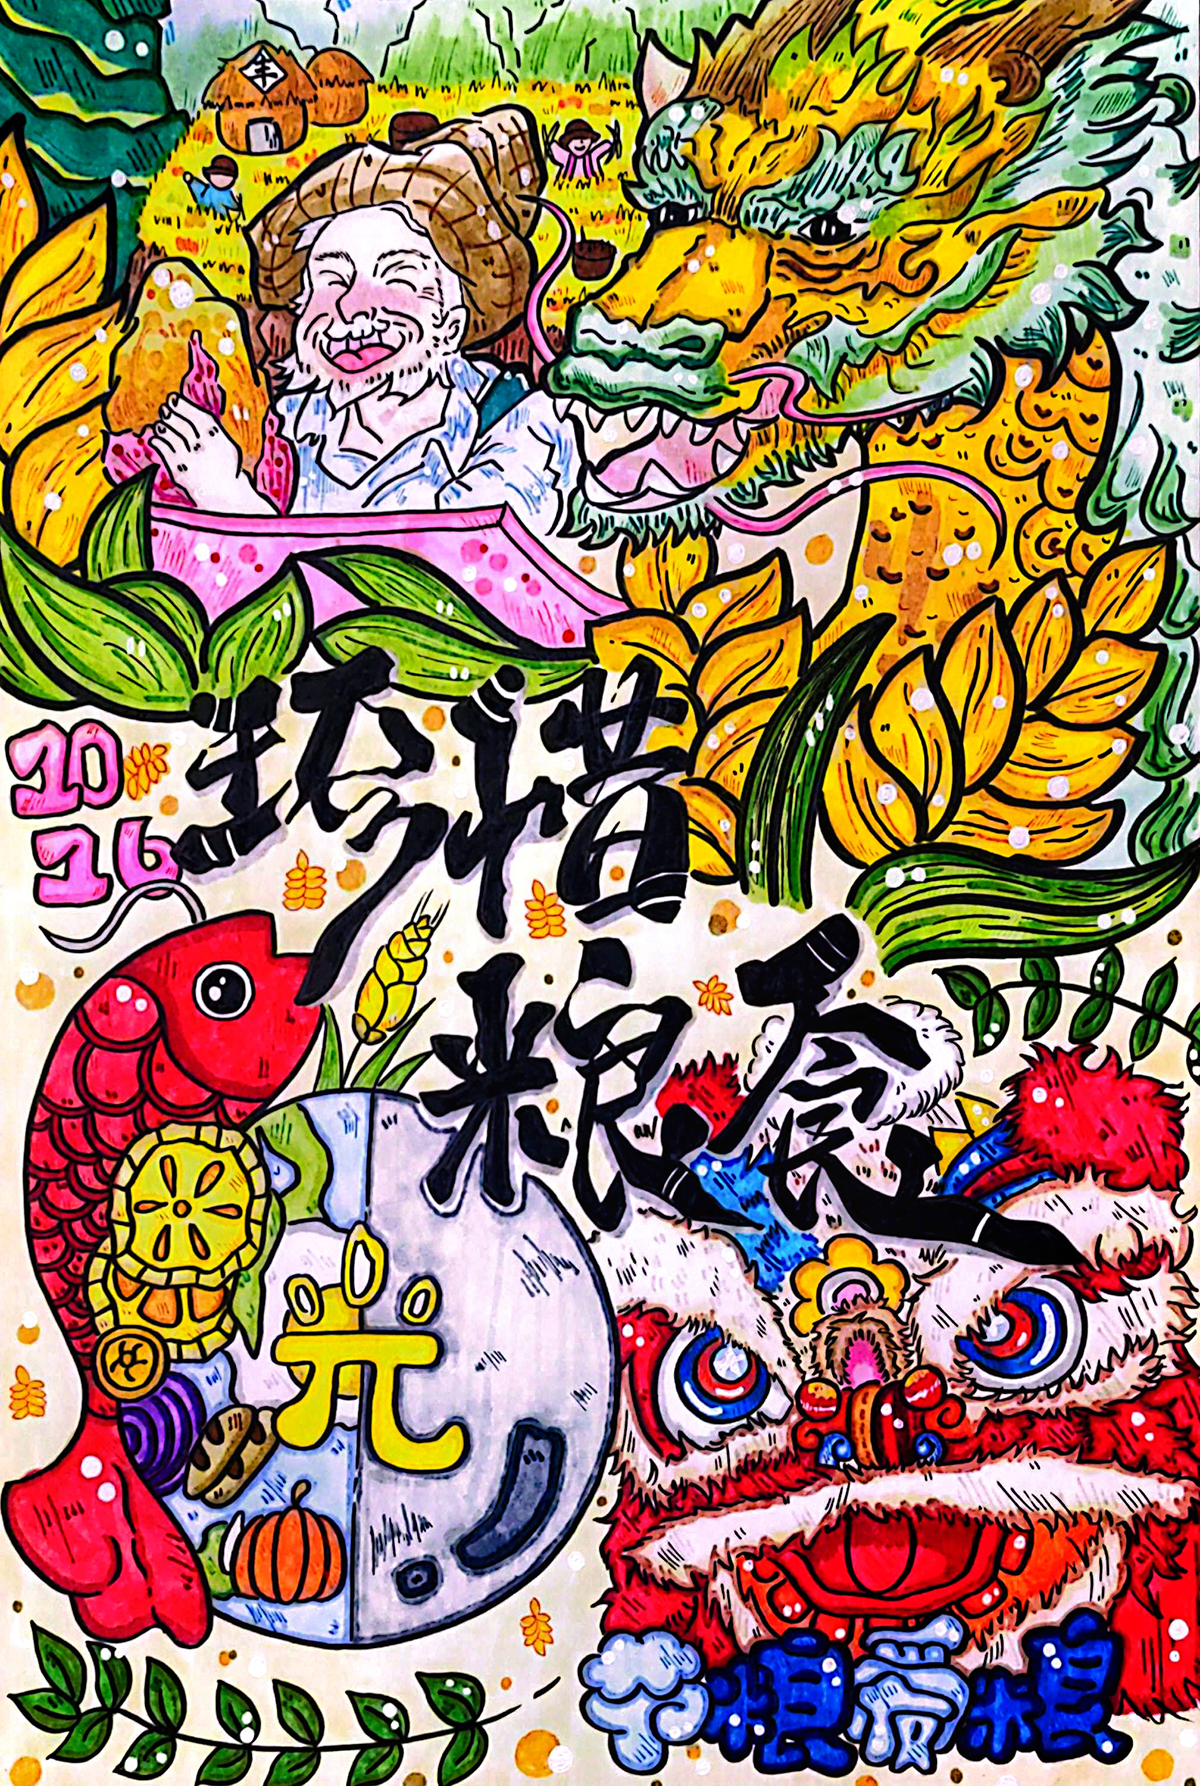 10
16
珍惜
粮食
光
节粮爱粮